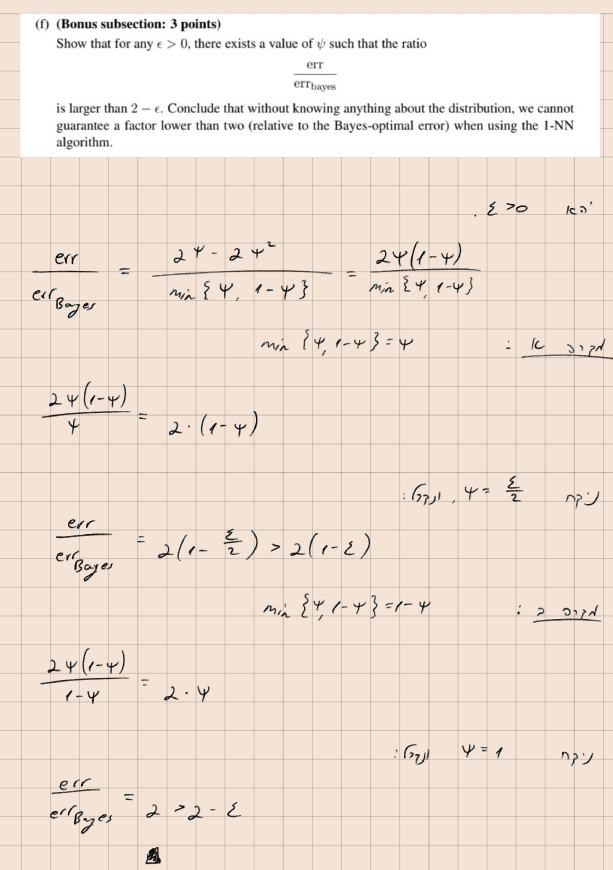 (f) (Bonus subsection: 3 points)
Show that for any ϵ > 0, there exists a value of ψ such that the ratio
err
err_bayes
is larger than 2 − ϵ. Conclude that without knowing anything about the distribution, we cannot
guarantee a factor lower than two (relative to the Bayes-optimal error) when using the 1-NN
algorithm.
יהא ε > 0 .
err / err_Bayes = (2ψ - 2ψ²) / min{ψ, 1-ψ} = 2ψ(1-ψ) / min{ψ, 1-ψ}
מקרה א : min{ψ, 1-ψ} = ψ
2ψ(1-ψ) / ψ = 2·(1-ψ)
ניקח ψ = ε/2 , ונקבל :
err / err_Bayes = 2(1 - ε/2) > 2(1-ε)
מקרה ב : min{ψ, 1-ψ} = 1-ψ
2ψ(1-ψ) / 1-ψ = 2·ψ
ניקח ψ = 1 ונקבל :
err / err_Bayes = 2 > 2 - ε